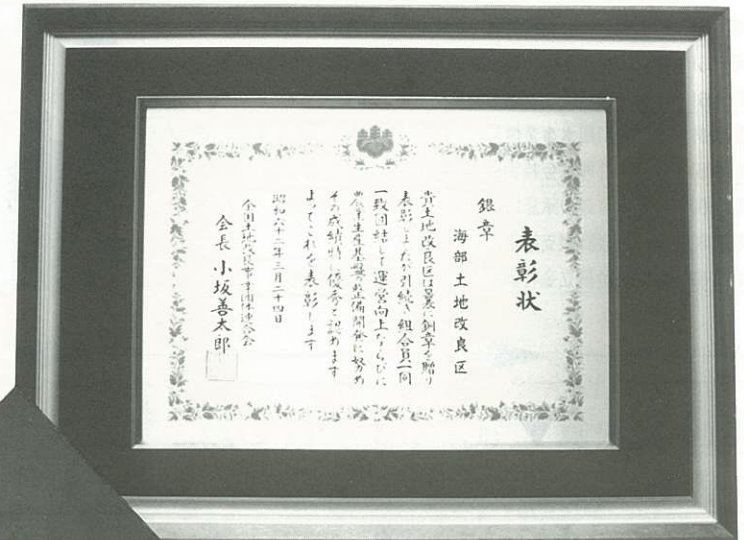 表彰状
銀章
海部土地改良区
貴土地改良区は曩に銅章を贈り
表彰しましたが引続き組合員一同
一致団結して運営向上ならびに
農業生産基盤の整備開発に努め
その成績特に優秀と認めます
よってこれを表彰します
昭和六十二年三月二十四日
全国土地改良事業団体連合会
会長 小坂善太郎